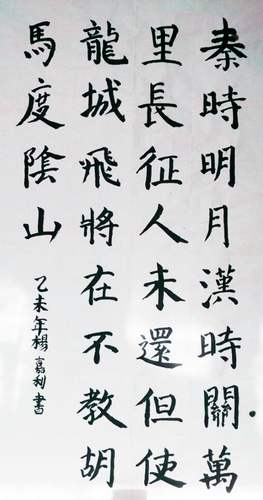 秦時明月漢時關萬
里長征人未還但使
龍城飛將在不教胡
馬度陰山
乙未年楊嘉利書